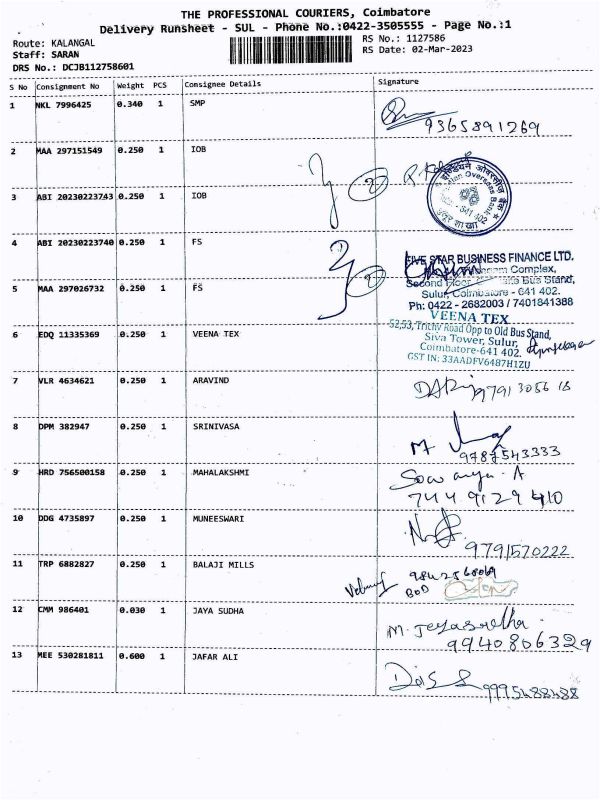 THE PROFESSIONAL COURIERS, Coimbatore
Delivery Runsheet - SUL - Phone No.:0422-3505555 - Page No.:1
Route: KALANGAL RS No.: 1127586
Staff: SARAN RS Date: 02-Mar-2023
DRS No.: DCJB112758601
S No Consignment No Weight PCS Consignee Details Signature
1 NKL 7996425 0.340 1 SMP
9365891269
2 MAA 297151549 0.250 1 IOB
3 ABI 20230223743 0.250 1 IOB
2
Indian Overseas Bank
641 402
4 ABI 20230223740 0.250 1 FS
FIVE STAR BUSINESS FINANCE LTD.
Complex,
Second Floor, Bus Stand,
5 MAA 297026732 0.250 1 FS
2
Sulur, Coimbatore - 641 402.
Ph: 0422 - 2682003 / 7401841388
VEENA TEX
52,53, Trichy Road Opp to Old Bus Stand,
6 EDQ 11335369 0.250 1 VEENA TEX
Siva Tower, Sulur,
Coimbatore-641 402.
GST IN: 33AADFV6487H1ZU
7 VLR 4634621 0.250 1 ARAVIND
8 DPM 382947 0.250 1 SRINIVASA
M
9787543333
9 HRD 756500158 0.250 1 MAHALAKSHMI
Sowmya. A
7449129410
10 DDG 4735897 0.250 1 MUNEESWARI
9791570222
11 TRP 6882827 0.250 1 BALAJI MILLS
BOD
12 CMM 986401 0.030 1 JAYA SUDHA
M. Jeyasudha
9940806329
13 MEE 530281811 0.600 1 JAFAR ALI
9995488488